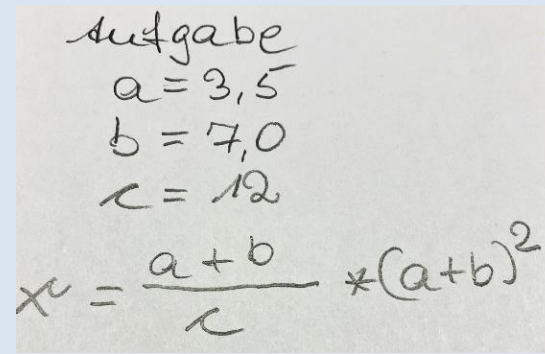 Aufgabe
a = 3,5
b = 7,0
c = 12
x = a + b / c * (a+b)²